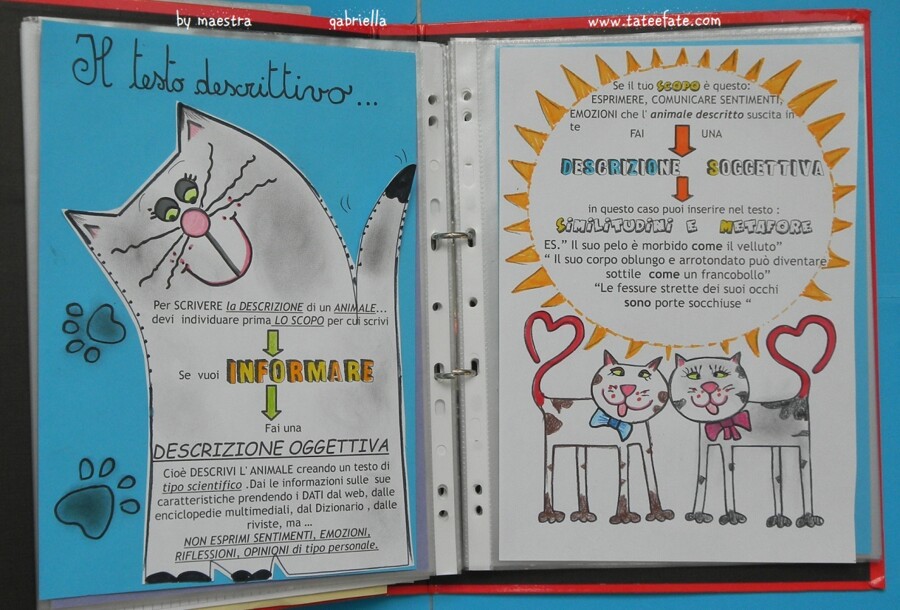 by maestra gabriella www.tateefate.com
Il testo descrittivo...
Per SCRIVERE la DESCRIZIONE di un ANIMALE...
devi individuare prima LO SCOPO per cui scrivi
Se vuoi INFORMARE
Fai una
DESCRIZIONE OGGETTIVA
Cioè DESCRIVI L' ANIMALE creando un testo di
tipo scientifico .Dai le informazioni sulle sue
caratteristiche prendendo i DATI dal web, dalle
enciclopedie multimediali, dal Dizionario , dalle
riviste, ma ...
NON ESPRIMI SENTIMENTI, EMOZIONI,
RIFLESSIONI, OPINIONI di tipo personale.
Se il tuo SCOPO è questo:
ESPRIMERE, COMUNICARE SENTIMENTI,
EMOZIONI che l' animale descritto suscita in
te
FAI UNA
DESCRIZIONE SOGGETTIVA
in questo caso puoi inserire nel testo :
SIMILITUDINI E METAFORE
ES." Il suo pelo è morbido come il velluto"
" Il suo corpo oblungo e arrotondato può diventare
sottile come un francobollo"
"Le fessure strette dei suoi occhi
sono porte socchiuse "